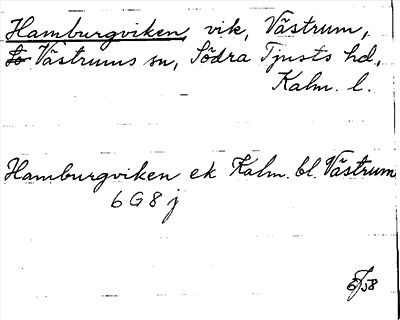 Hamburgviken, vik, Västrum,
Västrums sn, Södra Tjusts hd,
Kalm. l.
Hamburgviken ek Kalm. bl. Västrum
6 G 8 j